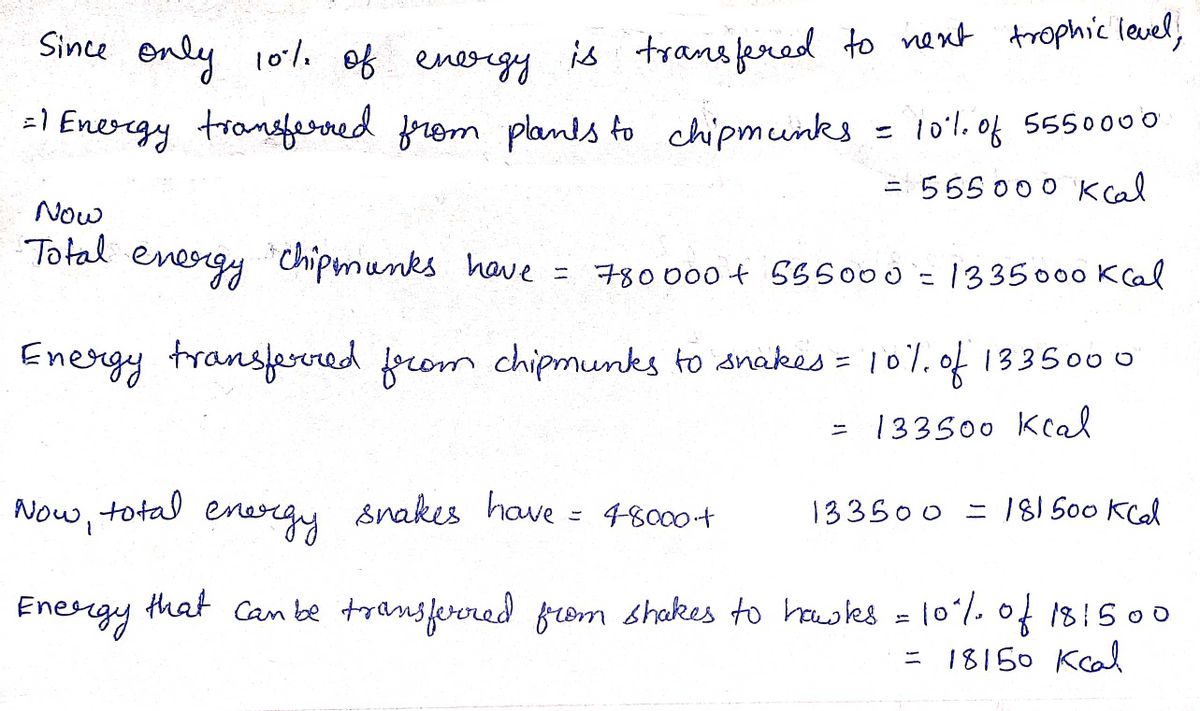 Since only 10% of energy is transfered to next trophic level,
=) Energy transferred from plants to chipmunks = 10% of 5550000
= 555000 Kcal
Now
Total energy chipmunks have = 780000 + 555000 = 1335000 Kcal
Energy transferred from chipmunks to snakes = 10% of 1335000
= 133500 Kcal
Now, total energy snakes have = 48000+ 133500 = 181500 Kcal
Energy that can be transferred from shakes to hawks = 10% of 181500
= 18150 Kcal